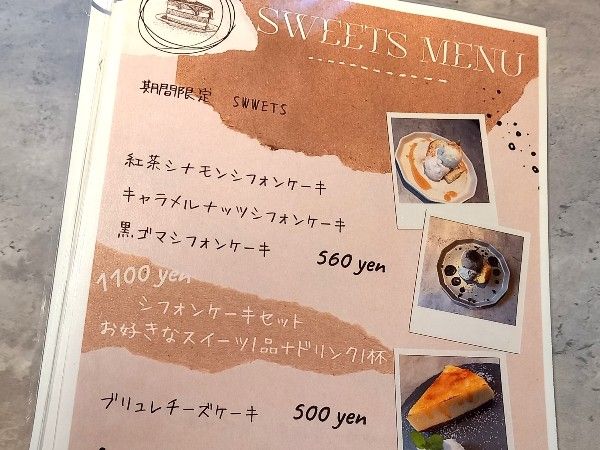 SWEETS MENU
期間限定 SWWETS
紅茶シナモンシフォンケーキ
キャラメルナッツシフォンケーキ
黒ゴマシフォンケーキ 560 yen
1100 yen
シフォンケーキセット
お好きなスイーツ1品+ドリンク1杯
ブリュレチーズケーキ 500 yen